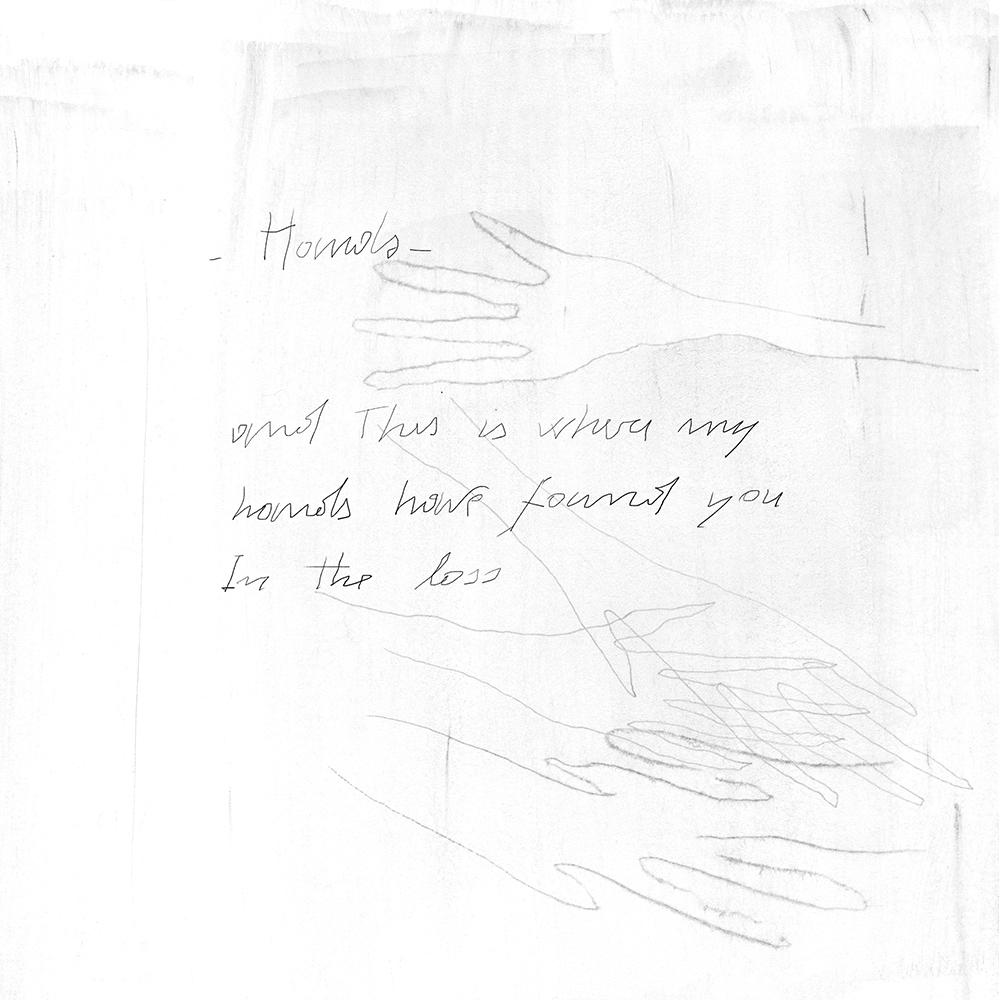 - Hands -
and This is where my
hands have found you
In the loss